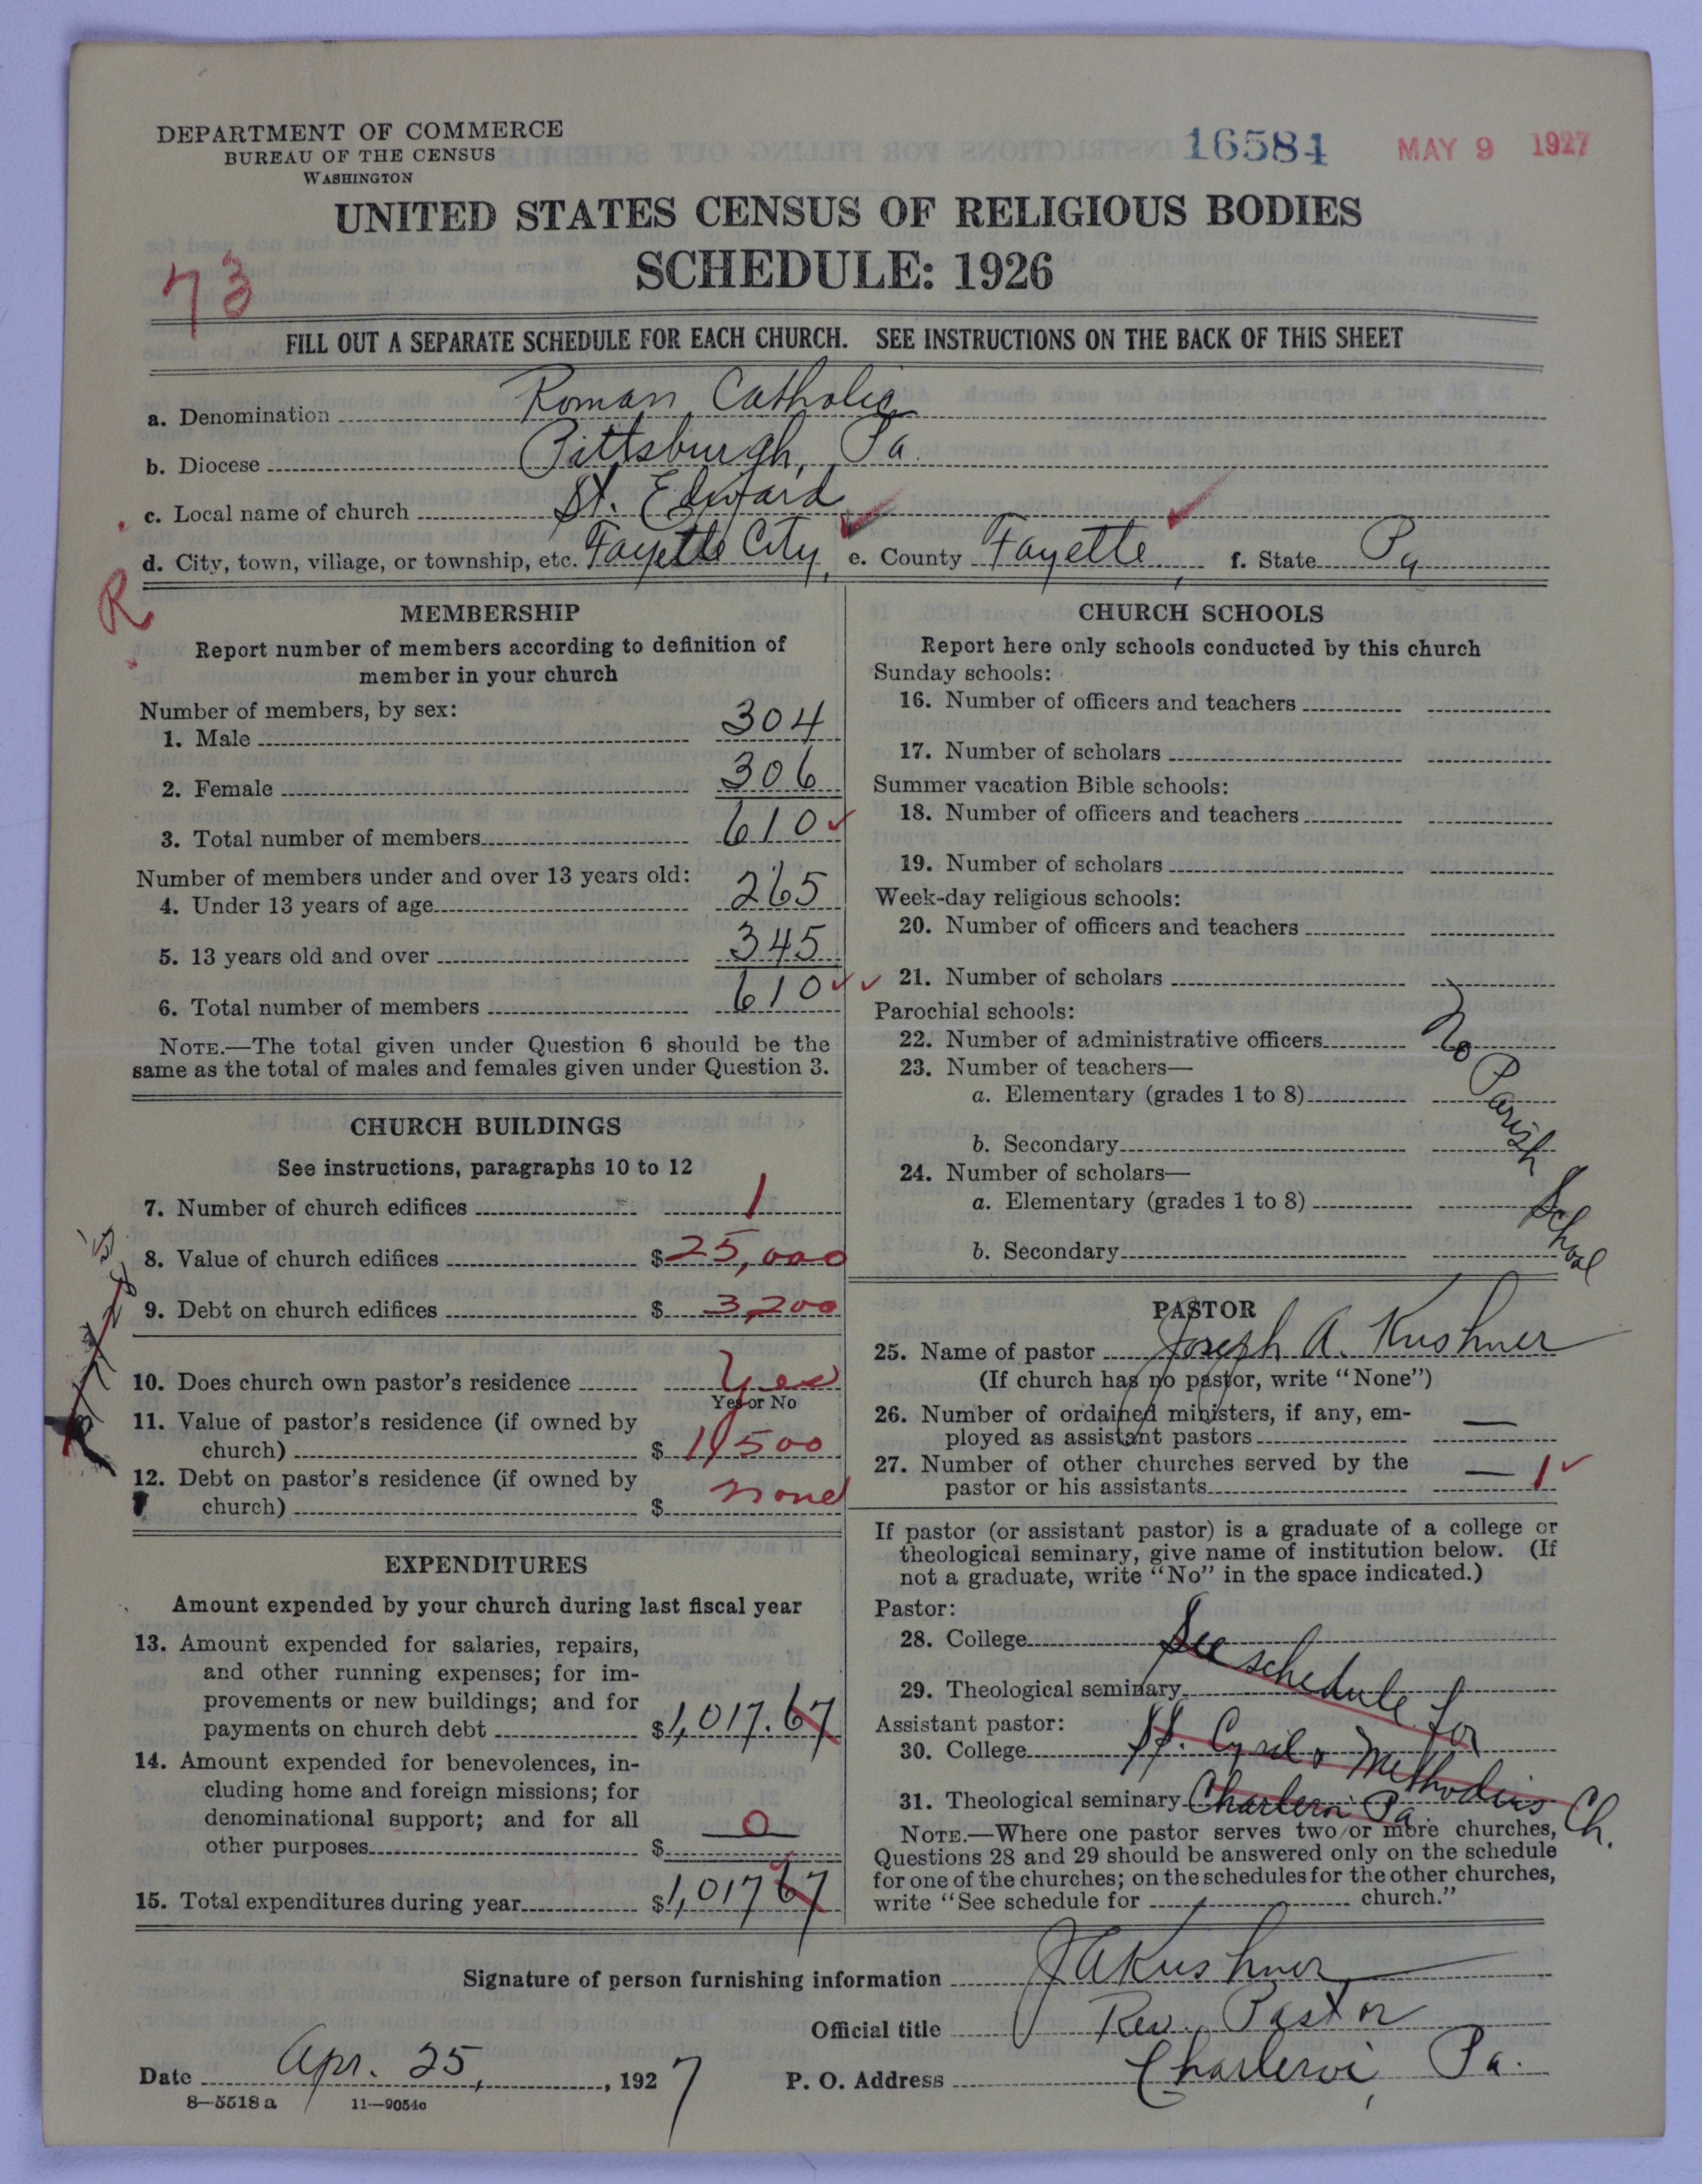 DEPARTMENT OF COMMERCE
BUREAU OF THE CENSUS
WASHINGTON
16584 MAY 9 1927
UNITED STATES CENSUS OF RELIGIOUS BODIES
SCHEDULE: 1926
73
FILL OUT A SEPARATE SCHEDULE FOR EACH CHURCH. SEE INSTRUCTIONS ON THE BACK OF THIS SHEET
a. Denomination Roman Catholic
b. Diocese Pittsburgh, Pa.
c. Local name of church St. Edward
d. City, town, village, or township, etc. Fayette City, e. County Fayette, f. State Pa
R
MEMBERSHIP
Report number of members according to definition of
member in your church
Number of members, by sex:
1. Male 304
2. Female 306
3. Total number of members 610 ✓
Number of members under and over 13 years old:
4. Under 13 years of age 265
5. 13 years old and over 345
6. Total number of members 610 ✓✓
NOTE.—The total given under Question 6 should be the
same as the total of males and females given under Question 3.
CHURCH BUILDINGS
See instructions, paragraphs 10 to 12
7. Number of church edifices 1
8. Value of church edifices $25,000
9. Debt on church edifices $3,200
10. Does church own pastor's residence Yes
Yes or No
11. Value of pastor's residence (if owned by
church) $11500
12. Debt on pastor's residence (if owned by
church) $ none
EXPENDITURES
Amount expended by your church during last fiscal year
13. Amount expended for salaries, repairs,
and other running expenses; for im-
provements or new buildings; and for
payments on church debt $1,017.67
14. Amount expended for benevolences, in-
cluding home and foreign missions; for
denominational support; and for all
other purposes $ 0
15. Total expenditures during year $1,017 67
CHURCH SCHOOLS
Report here only schools conducted by this church
Sunday schools:
16. Number of officers and teachers
17. Number of scholars
Summer vacation Bible schools:
18. Number of officers and teachers
19. Number of scholars
Week-day religious schools:
20. Number of officers and teachers
21. Number of scholars
Parochial schools:
22. Number of administrative officers
23. Number of teachers—
a. Elementary (grades 1 to 8)
b. Secondary
24. Number of scholars—
a. Elementary (grades 1 to 8)
b. Secondary
No Parish School
PASTOR
25. Name of pastor Joseph A. Kushner
(If church has no pastor, write "None")
26. Number of ordained ministers, if any, em-
ployed as assistant pastors —
27. Number of other churches served by the
pastor or his assistants — 1 ✓
If pastor (or assistant pastor) is a graduate of a college or
theological seminary, give name of institution below. (If
not a graduate, write "No" in the space indicated.)
Pastor:
28. College See schedule for
29. Theological seminary
Assistant pastor:
30. College SS. Cyril & Methodius Ch.
31. Theological seminary Charleroi Pa.
NOTE.—Where one pastor serves two or more churches,
Questions 28 and 29 should be answered only on the schedule
for one of the churches; on the schedules for the other churches,
write "See schedule for church."
Signature of person furnishing information J A Kushner
Official title Rev. Pastor
Date Apr. 25, 1927 P. O. Address Charleroi, Pa.
8—5518 a 11—9054c